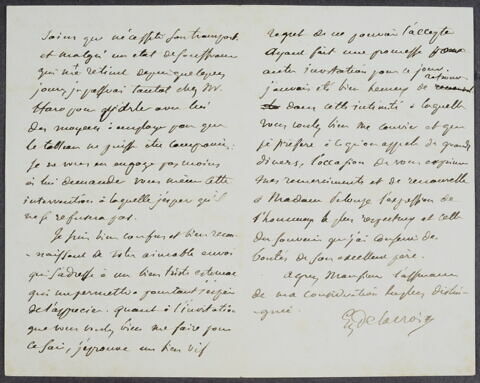 soins que nécessite son transport
et malgré un état de souffrance
qui me retient depuis quelques
jours je passerai tantôt chez Mr
Haro pour           avec lui
des moyens à employer pour que
le tableau ne puisse être compromis:
Je ne vous en engage pas moins
à lui demander vous même cette
intervention à laquelle j'espère qu'il
ne se refusera pas.
Je suis bien confus et bien recon-
naissant de votre aimable envoi
qui s'adresse à un bien       estomac
qui me permettra pourtant j'espère
de l'apprécier. quant à l'invitation
que vous voulez bien me faire pour
ce soir, j'éprouve un bien vif
regret de ne pouvoir l'accepter
ayant fait une promesse
autre invitation pour ce jour.
j'aurais été bien heureux de retrouver
dans cette intimité à laquelle
vous voulez bien me convier et que
je préfère à ce qu'on appelle de grands
dîners, l'occasion de vous exprimer
mes remerciments et de renouveler
à Madame          l'expression de
l'hommage le plus respectueux et celle
du souvenir que j'ai conservé des
bontés de son excellent père.
Agréez Monsieur l'assurance
de ma considération la plus distin-
guée.
EugDelacroix